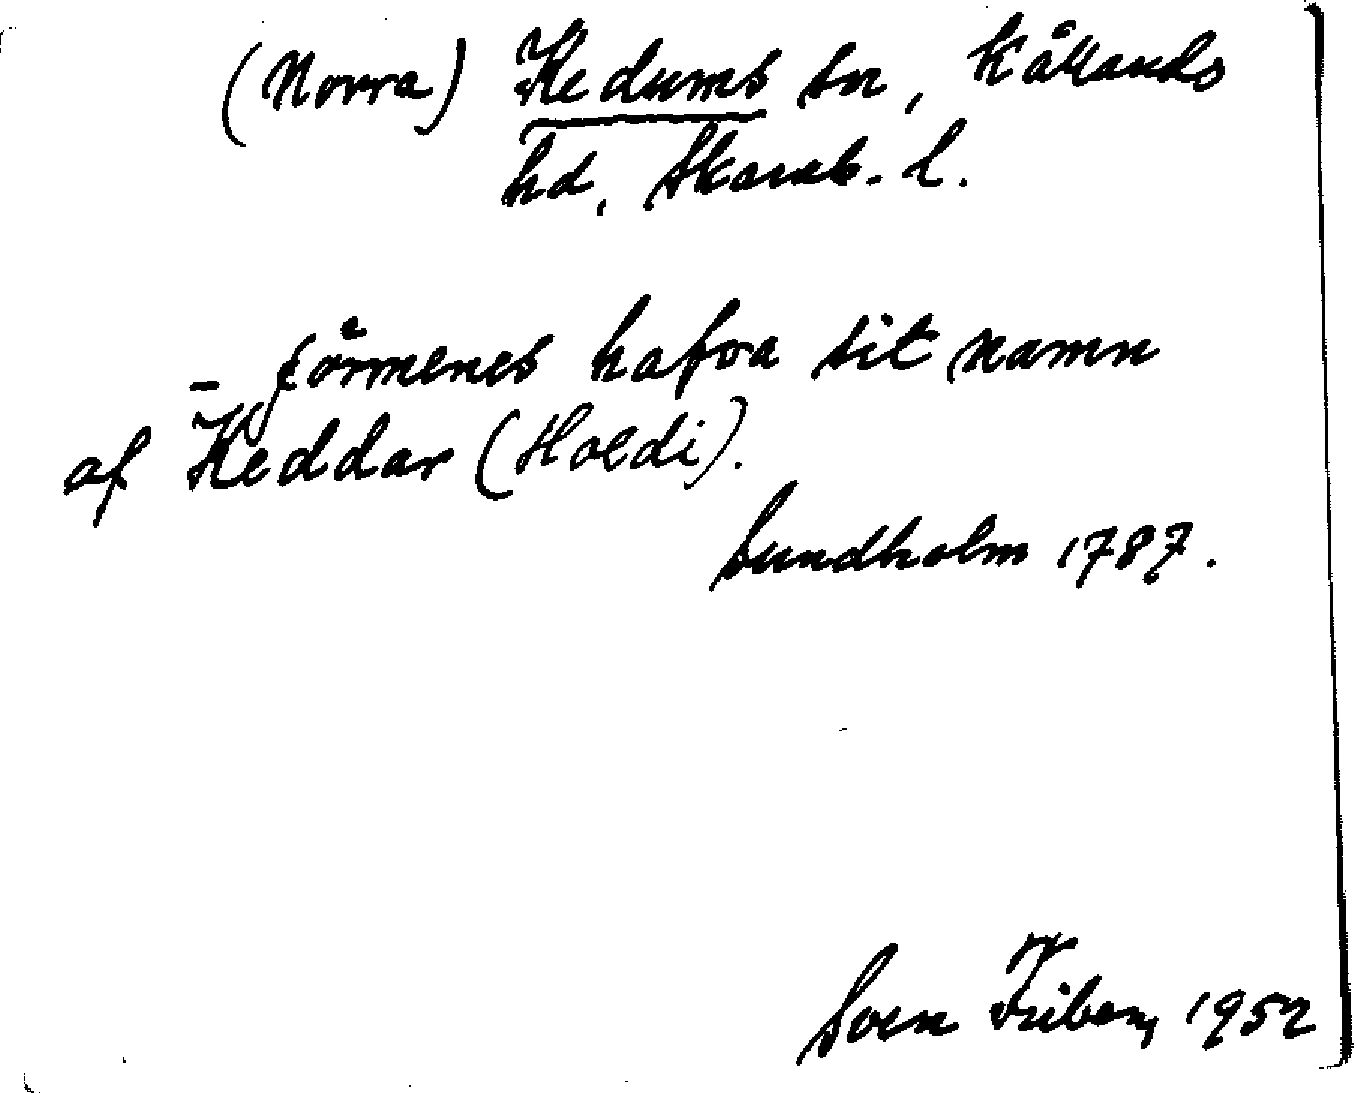 (Norra) Kedums sn, Kållands
hd, Skarab. l.
- förmenes hafva sit namn
af Keddar (Hoedi).
Sundholm 1787.
Sven Friberg, 1952